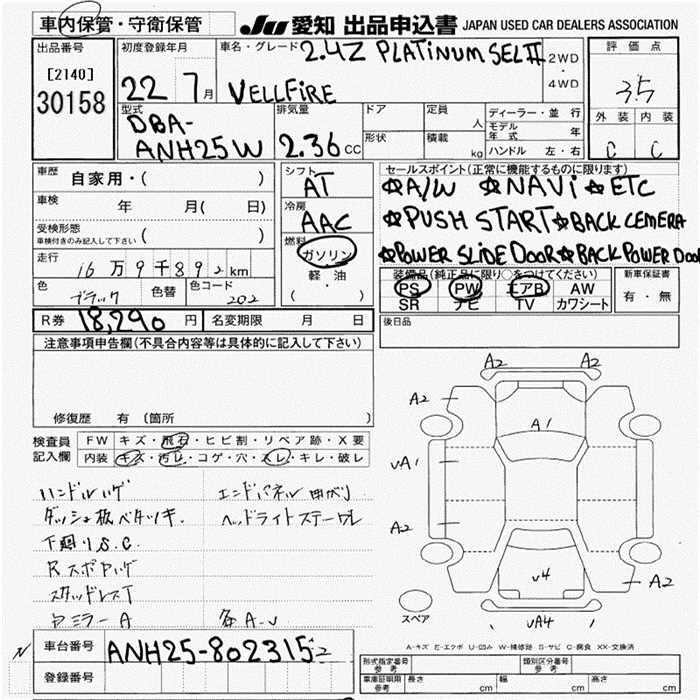 車内保管・守衛保管 JU 愛知 出品申込書 JAPAN USED CAR DEALERS ASSOCIATION
出品番号
[2140]
30158
初度登録年月
22 7月
車名・グレード 2.4Z PLATINUM SEL II
VELLFIRE
2WD
・
4WD
評価点
3.5
外装 内装
C C
型式
DBA-
ANH25W
排気量
2.36cc
ドア
定員 人
形状
積載 kg
ディーラー・並行
モデル年式 年
ハンドル 左・右
車歴 自家用・( )
車検 年 月( 日)
受検形態
車検付きのみ記入して下さい ( )
走行
16万9千892km
色 ブラック 色替 色コード 202
シフト
AT
冷房
AAC
燃料
ガソリン
軽・油
( )
セールスポイント(正常に機能するものに限ります)
☆A/W ☆NAVi ☆ETC
☆PUSH START ☆BACK CEMERA
☆POWER SLIDE DOOR ☆BACK POWER DOOR
装備品(純正品に限り○をつけてください)
PS PW エアB AW
SR ナビ TV カワシート
新車保証書
有・無
R券 18,290円 名変期限 月 日
後日品
注意事項申告欄(不具合内容等は具体的に記入して下さい)
修復歴 有 (箇所 )
検査員
記入欄
FW キズ・飛石・ヒビ割・リペア跡・X要
内装 キズ・汚レ・コゲ・穴・スレ・キレ・破レ
ハンドルハゲ エンドパネル曲がり
ダッシュ板ベタツキ. ヘッドライトステーワレ
下廻りS.C
Rスポハゲ
スタッドレスT
ミラーA 各A-U
A2 A2
A2 A2
A1
UA1
A2
U4 A2
UA4
スペア
A-キズ E-エクボ U-凹み W-補修跡 S-サビ C-腐食 XX-交換済
車台番号 ANH25-8023152
登録番号
形式指定番号
参考
類別区分番号
参考
車庫証明用
参考
長さ cm 幅 cm 高さ cm